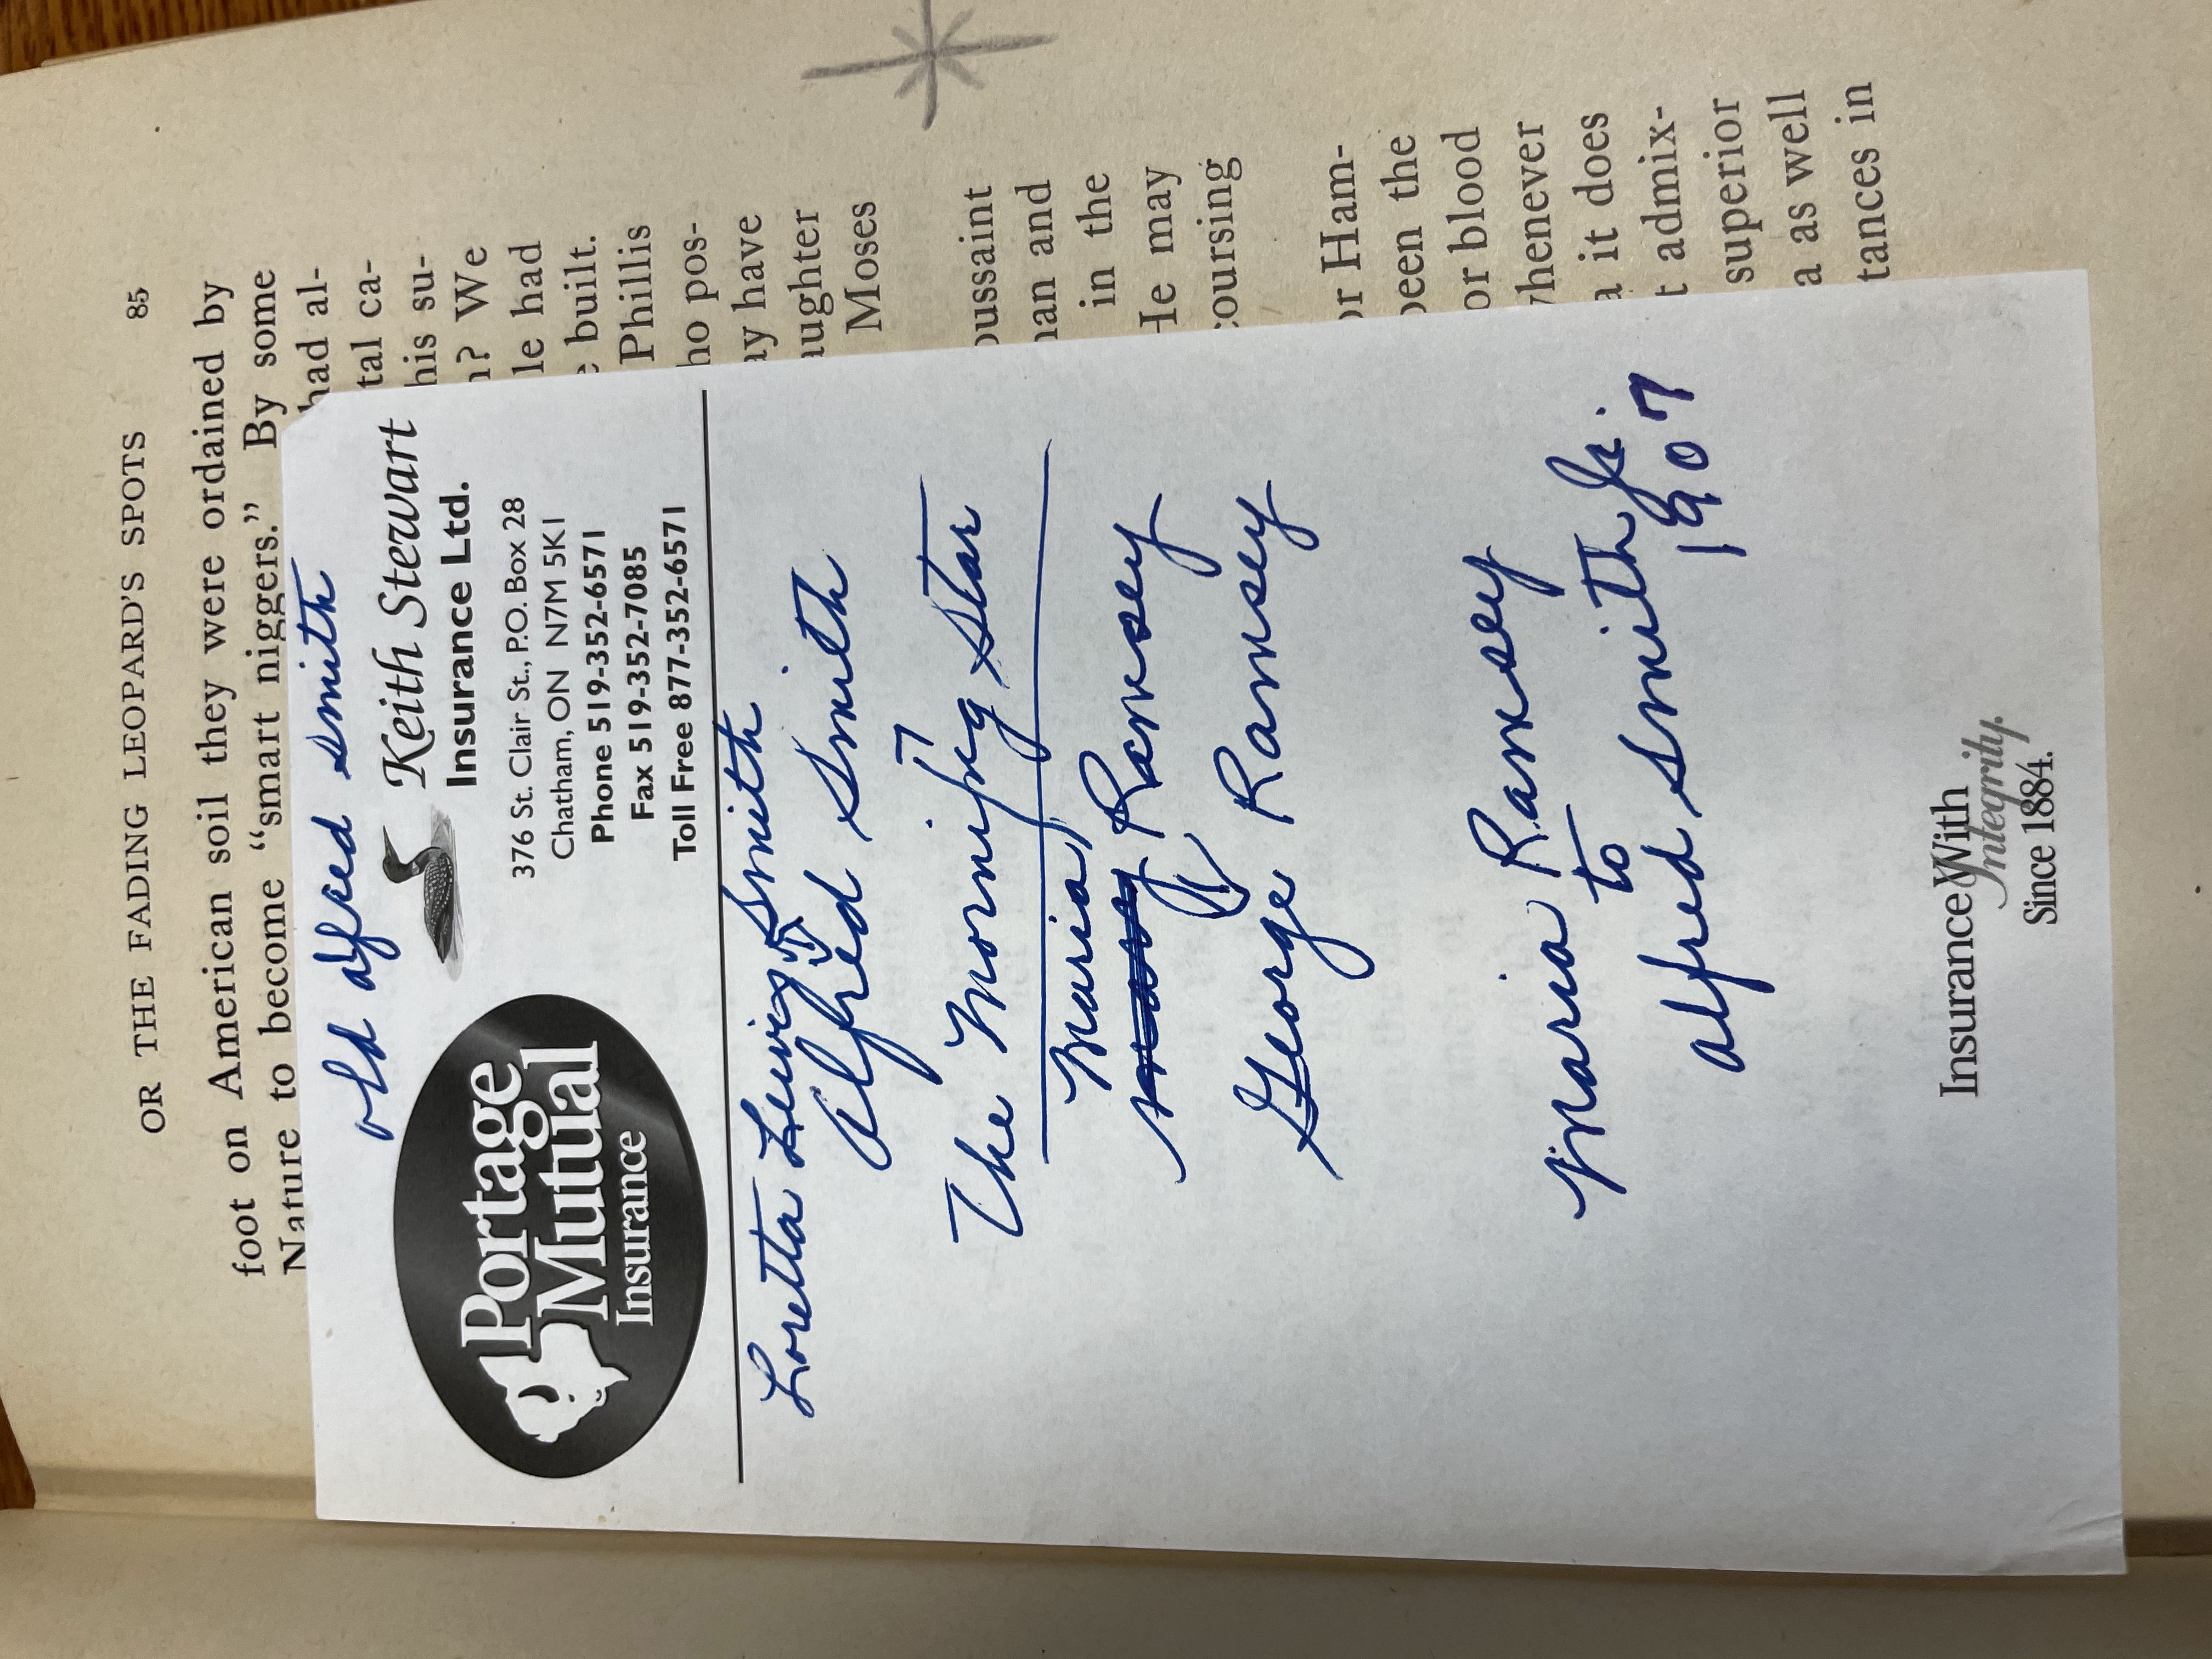 OR THE FADING LEOPARD'S SPOTS 85
foot on American soil they were ordained by
Nature to become “smart niggers.” By some
had al-
tal ca-
his su-
? We
le had
built.
Phillis
ho pos-
ay have
aughter
Moses
oussaint
an and
in the
He may
coursing
or Ham-
been the
or blood
henever
it does
t admix-
superior
a as well
tances in
old alfred smith
Portage
Mutual
Insurance
Keith Stewart
Insurance Ltd.
376 St. Clair St., P.O. Box 28
Chatham, ON N7M 5K1
Phone 519-352-6571
Fax 519-352-7085
Toll Free 877-352-6571
Loretta Smith
Alfred Smith
The Morning Star
Maria
Ramsey
George Ramsey
Maria Ramsey
to
alfred smith Jr.
1907
Insurance With
Integrity.
Since 1884.